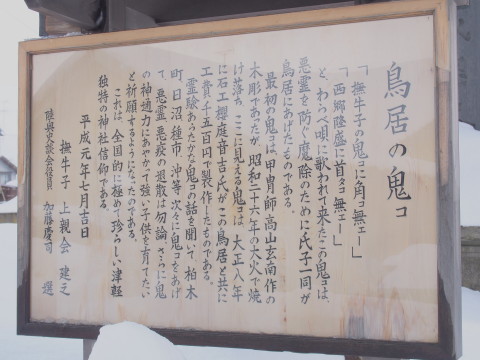 鳥居の鬼コ
「撫牛子の鬼コに角コ無ェー」
「西郷隆盛に首タコ無ェー」
と、わらべ唄に歌われて来たこの鬼コは、
悪霊を防ぐ魔除のために氏子一同が
鳥居にあげたものである。
最初の鬼コは、甲冑師高山玄南作の
木彫であったが、昭和二十六年の大火で焼
け落ち、ここに見える鬼コは、大正八年
に石工櫻庭音吉氏がこの鳥居と共に
工費千五百円で製作したものである。
霊験あらたかな鬼コの話を聞いて、柏木
町、日沼、種市、沖等、次々に鬼コをあげ
て、悪霊、悪疫の退散は勿論、さらに鬼
の神通力にあやかって強い子供を育てたい
と祈願するようになったのである。
これは、全国的に極めて珍らしい津軽
独特の神社信仰である。
平成元年七月吉日
撫牛子 上親会 建之
陸奥史談会役員 加藤慶司 選